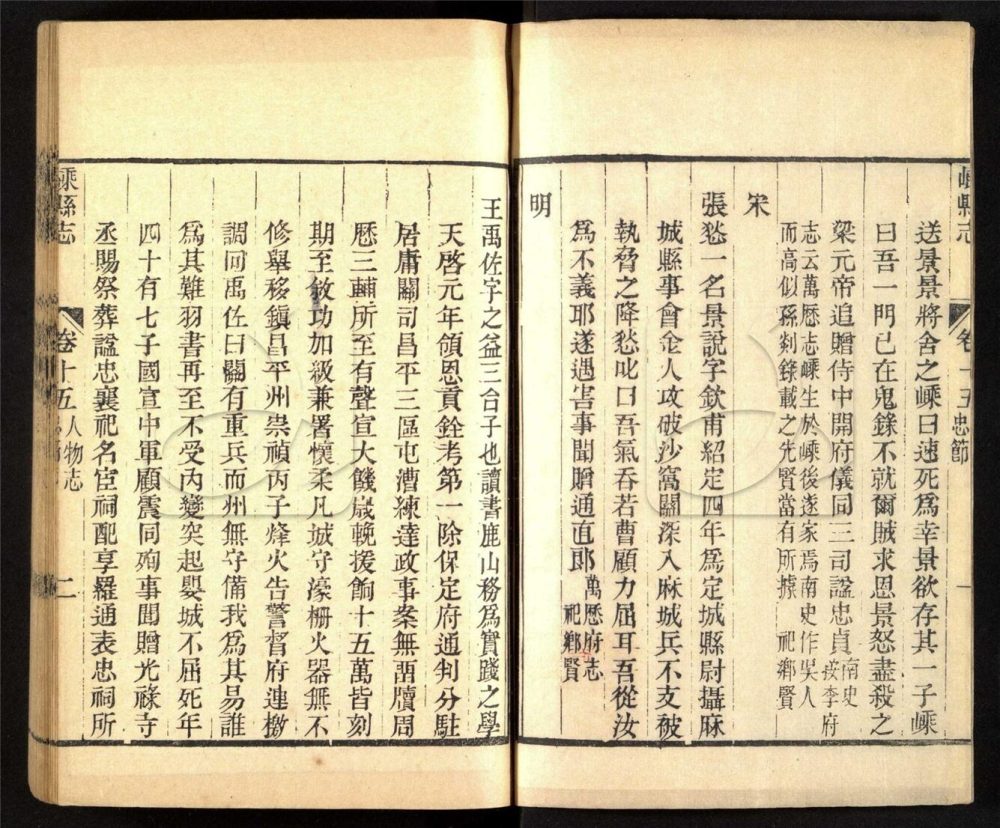 嵊縣志 卷十五 忠節 一
送景景將舍之嵊曰速死爲幸景欲存其一子嵊
曰吾一門已在鬼錄不就爾賊求恩景怒盡殺之
梁元帝追贈侍中開府儀同三司諡忠貞 南史
按李府
志云萬歷志嵊生於嵊後遂家焉南史作吳人
而高似孫剡錄載之先賢當有所據 祀鄉賢
宋
張愁一名景說字欽甫紹定四年爲定城縣尉攝麻
城縣事會金人攻破沙窩關深入麻城兵不支被
執脅之降愁叱曰吾氣吞若曹顧力屈耳吾從汝
爲不義耶遂遇害事聞贈通直郎 萬歷府志
祀鄉賢
明
王禹佐字之益三台子也讀書鹿山務爲實踐之學
天啓元年領恩貢銓考第一除保定府通判分駐
居庸關司昌平三區屯漕練達政事案無畱牘周
歷三輔所至有聲宣大饑歲輓援餉十五萬皆刻
期至敘功加級兼署懷柔凡城守濠柵火器無不
修舉移鎭昌平州崇禎丙子烽火告警督府連檄
調囘禹佐曰關有重兵而州無守備我爲其易誰
爲其難羽書再至不受內變突起嬰城不屈死年
四十有七子國宣中軍顧震同殉事聞贈光祿寺
丞賜祭葬諡忠襄祀名宦祠配享羅通表忠祠所
嵊縣志 卷十五 人物志 二